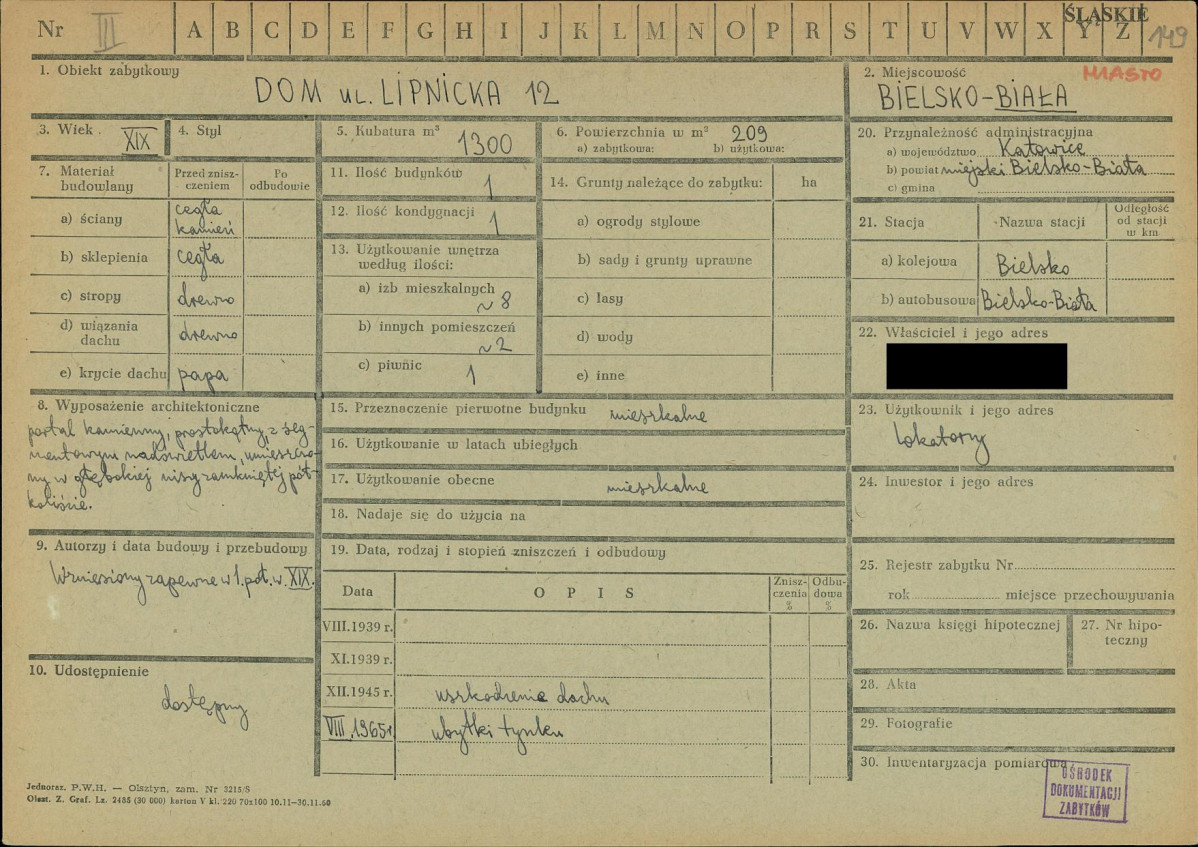 Nr III A B C D E F G H I J K L M N O P R S T U V W X Y Z ŚLĄSKIE 149
1. Obiekt zabytkowy
DOM UL. LIPNICKA 12
2. Miejscowość MIASTO
BIELSKO-BIAŁA
3. Wiek XIX
4. Styl
5. Kubatura m³ 1300
6. Powierzchnia w m² 209
a) zabytkowa: b) użytkowa:
20. Przynależność administracyjna
a) województwo Katowice
b) powiat miejski Bielsko-Biała
c) gmina
7. Materiał budowlany
Przed zniszczeniem
Po odbudowie
a) ściany cegła kamień
b) sklepienia cegła
c) stropy drewno
d) wiązania dachu drewno
e) krycie dachu papa
11. Ilość budynków 1
12. Ilość kondygnacji 1
13. Użytkowanie wnętrza
według ilości:
a) izb mieszkalnych ~8
b) innych pomieszczeń ~2
c) piwnic 1
14. Grunty należące do zabytku: ha
a) ogrody stylowe
b) sady i grunty uprawne
c) lasy
d) wody
e) inne
21. Stacja Nazwa stacji Odległość od stacji w km
a) kolejowa Bielsko
b) autobusowa Bielsko-Biała
22. Właściciel i jego adres
8. Wyposażenie architektoniczne
portal kamienny, prostokątny, z seg-
mentowym nadświetlem, umieszczo-
ny w głębokiej niszy zamkniętej pół-
koliście.
15. Przeznaczenie pierwotne budynku mieszkalne
16. Użytkowanie w latach ubiegłych
17. Użytkowanie obecne mieszkalne
18. Nadaje się do użycia na
23. Użytkownik i jego adres
lokatorzy
24. Inwestor i jego adres
9. Autorzy i data budowy i przebudowy
Wzniesiony zapewne w 1. poł. w. XIX.
10. Udostępnienie
dostępny
19. Data, rodzaj i stopień zniszczeń i odbudowy
Data OPIS Zniszczenia % Odbudowa %
VIII.1939 r.
XI.1939 r.
XII.1945 r. uszkodzenie dachu
VIII.1965r ubytki tynku
25. Rejestr zabytku Nr
rok miejsce przechowywania
26. Nazwa księgi hipotecznej
27. Nr hipoteczny
28. Akta
29. Fotografie
30. Inwentaryzacja pomiarowa
OŚRODEK
DOKUMENTACJI
ZABYTKÓW
Jednoraz. P.W.H. — Olsztyn, zam. Nr 3215/S
Olszt. Z. Graf. Lz. 2485 (30 000) karton V kl. 220 70x100 10.11—30.11.60